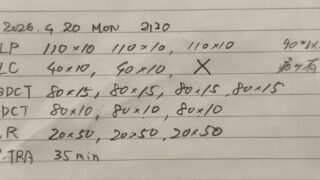 2026. 4. 20 MON 2130
LP 110×10 110×10, 110×10
LC 40×10, 40×10, X
BDCT 80×15, 80×15, 80×15, 80×15
DCT 80×10, 80×10, 80×10
R 20×50, 20×50, 20×50
TRA 35 min